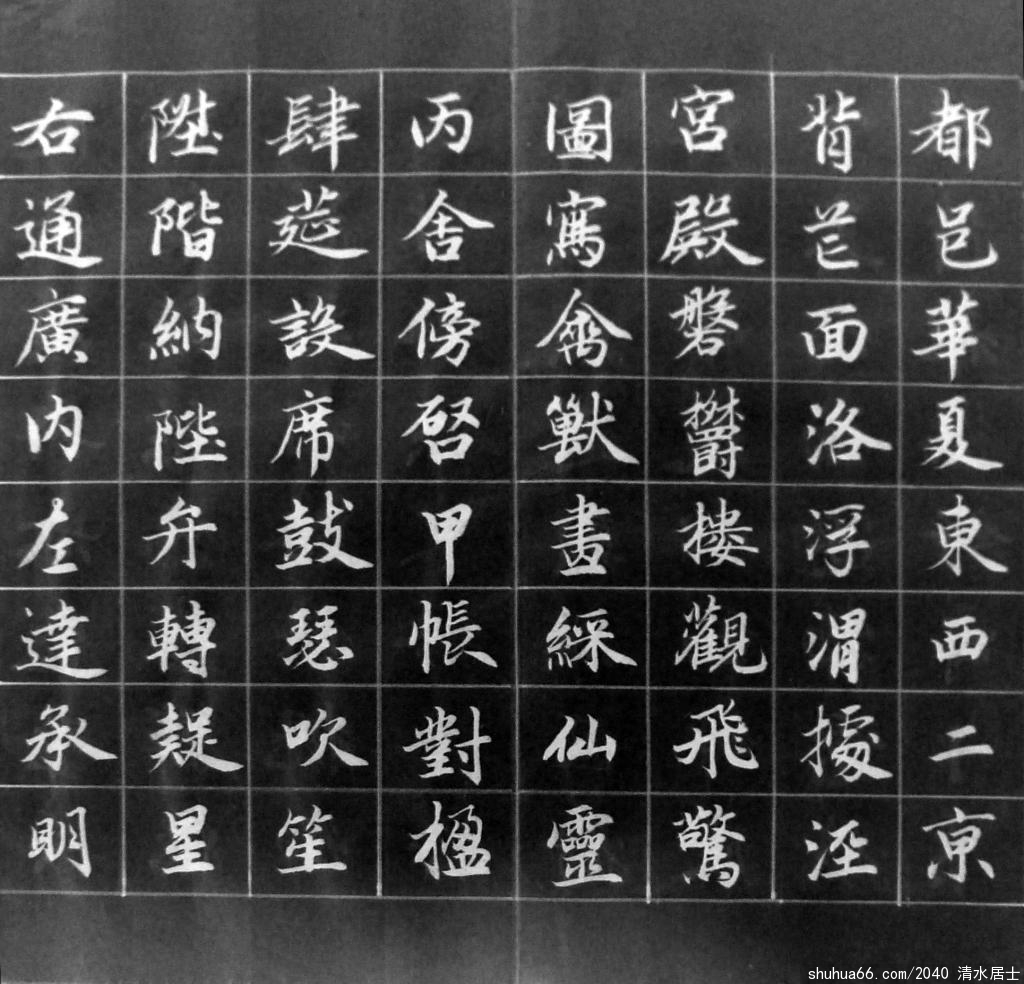 都邑華夏東西二京
背芒面洛浮渭據涇
宮殿磐鬱樓觀飛驚
圖寫禽獸畫綵仙靈
丙舍傍啓甲帳對楹
肆筵設席鼓瑟吹笙
陞階納陛弁轉疑星
右通廣内左達承明
shuhua66.com/2040 清水居士